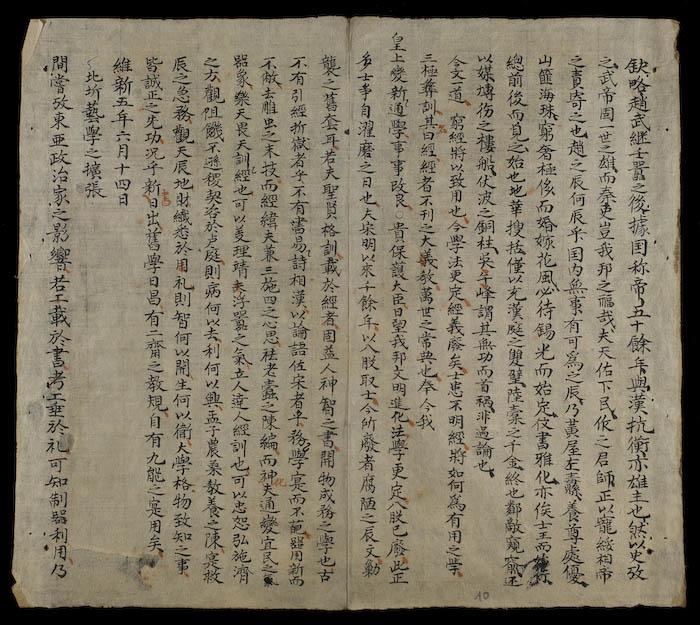 欽略趙武継壬囂之後據国称帝五十餘年與漢抗衡亦雄主也然以史攷
之武帝固一世之雄而秦吏豈我邦之福哉夫天佑下民作之君師正以寵綏相帝
之責寄之也趙之辰何辰乎国内無事有可為之辰乃黄屋左纛養尊處優
山簠海珠窮奢極侈而婚嫁花風必待錫光而始定伩書雅化亦俟士王而
總前後而見之始也地華搜括僅以光漢庭之雙璧陸橐之千金終也鄰敵窺窬还
以媒博伤之樓船伏波之銅柱吳午峰謂其無功而首禍非過論也
今文一道 窮經將以致用也今學法更定經義廢矣士患不明經將如何為有用之學
三極彝訓其曰經經者不刊之大義教萬世之常典也奉今我
皇上变新通學事事改良○貴保護大臣日望我邦文明進化法學更定八股已廢此正
多士事自濯磨之日也夫宋明以來千餘年以八股取士今所廢者腐陋之辰文勦
襲之舊套耳若夫聖賢格訓載於經者固益人神智之書開物成務之學也古
不有引經折獄者乎不有書易詩相漢以論語佐宋者乎務學寔而不葩噐用新而
不敝去雕虫之末技而經緯夫兼三施四之心思祛老蠹之陳編而神夫通變宜民之
噐象樂天畏天訓經也可以爕理靖夫浮囂之氣立人達人經訓也可以忠恕弘施濟
之方觀阻饑不遜稷咨於卢庭則病何以去利何以興孟子農桑教養之陳寔救
辰之急務觀天辰地財織悉於用礼則智何以開生何以衛大學格物致知之事
皆誠正之先功况乎新日出舊學日昌有二齋之教規自有九能之寔用矣
維新五年六月十四日
北圻藝學之擴張
間嘗攷東亜政治家之影響若工載於書考工垂於礼可知制噐利用乃
10